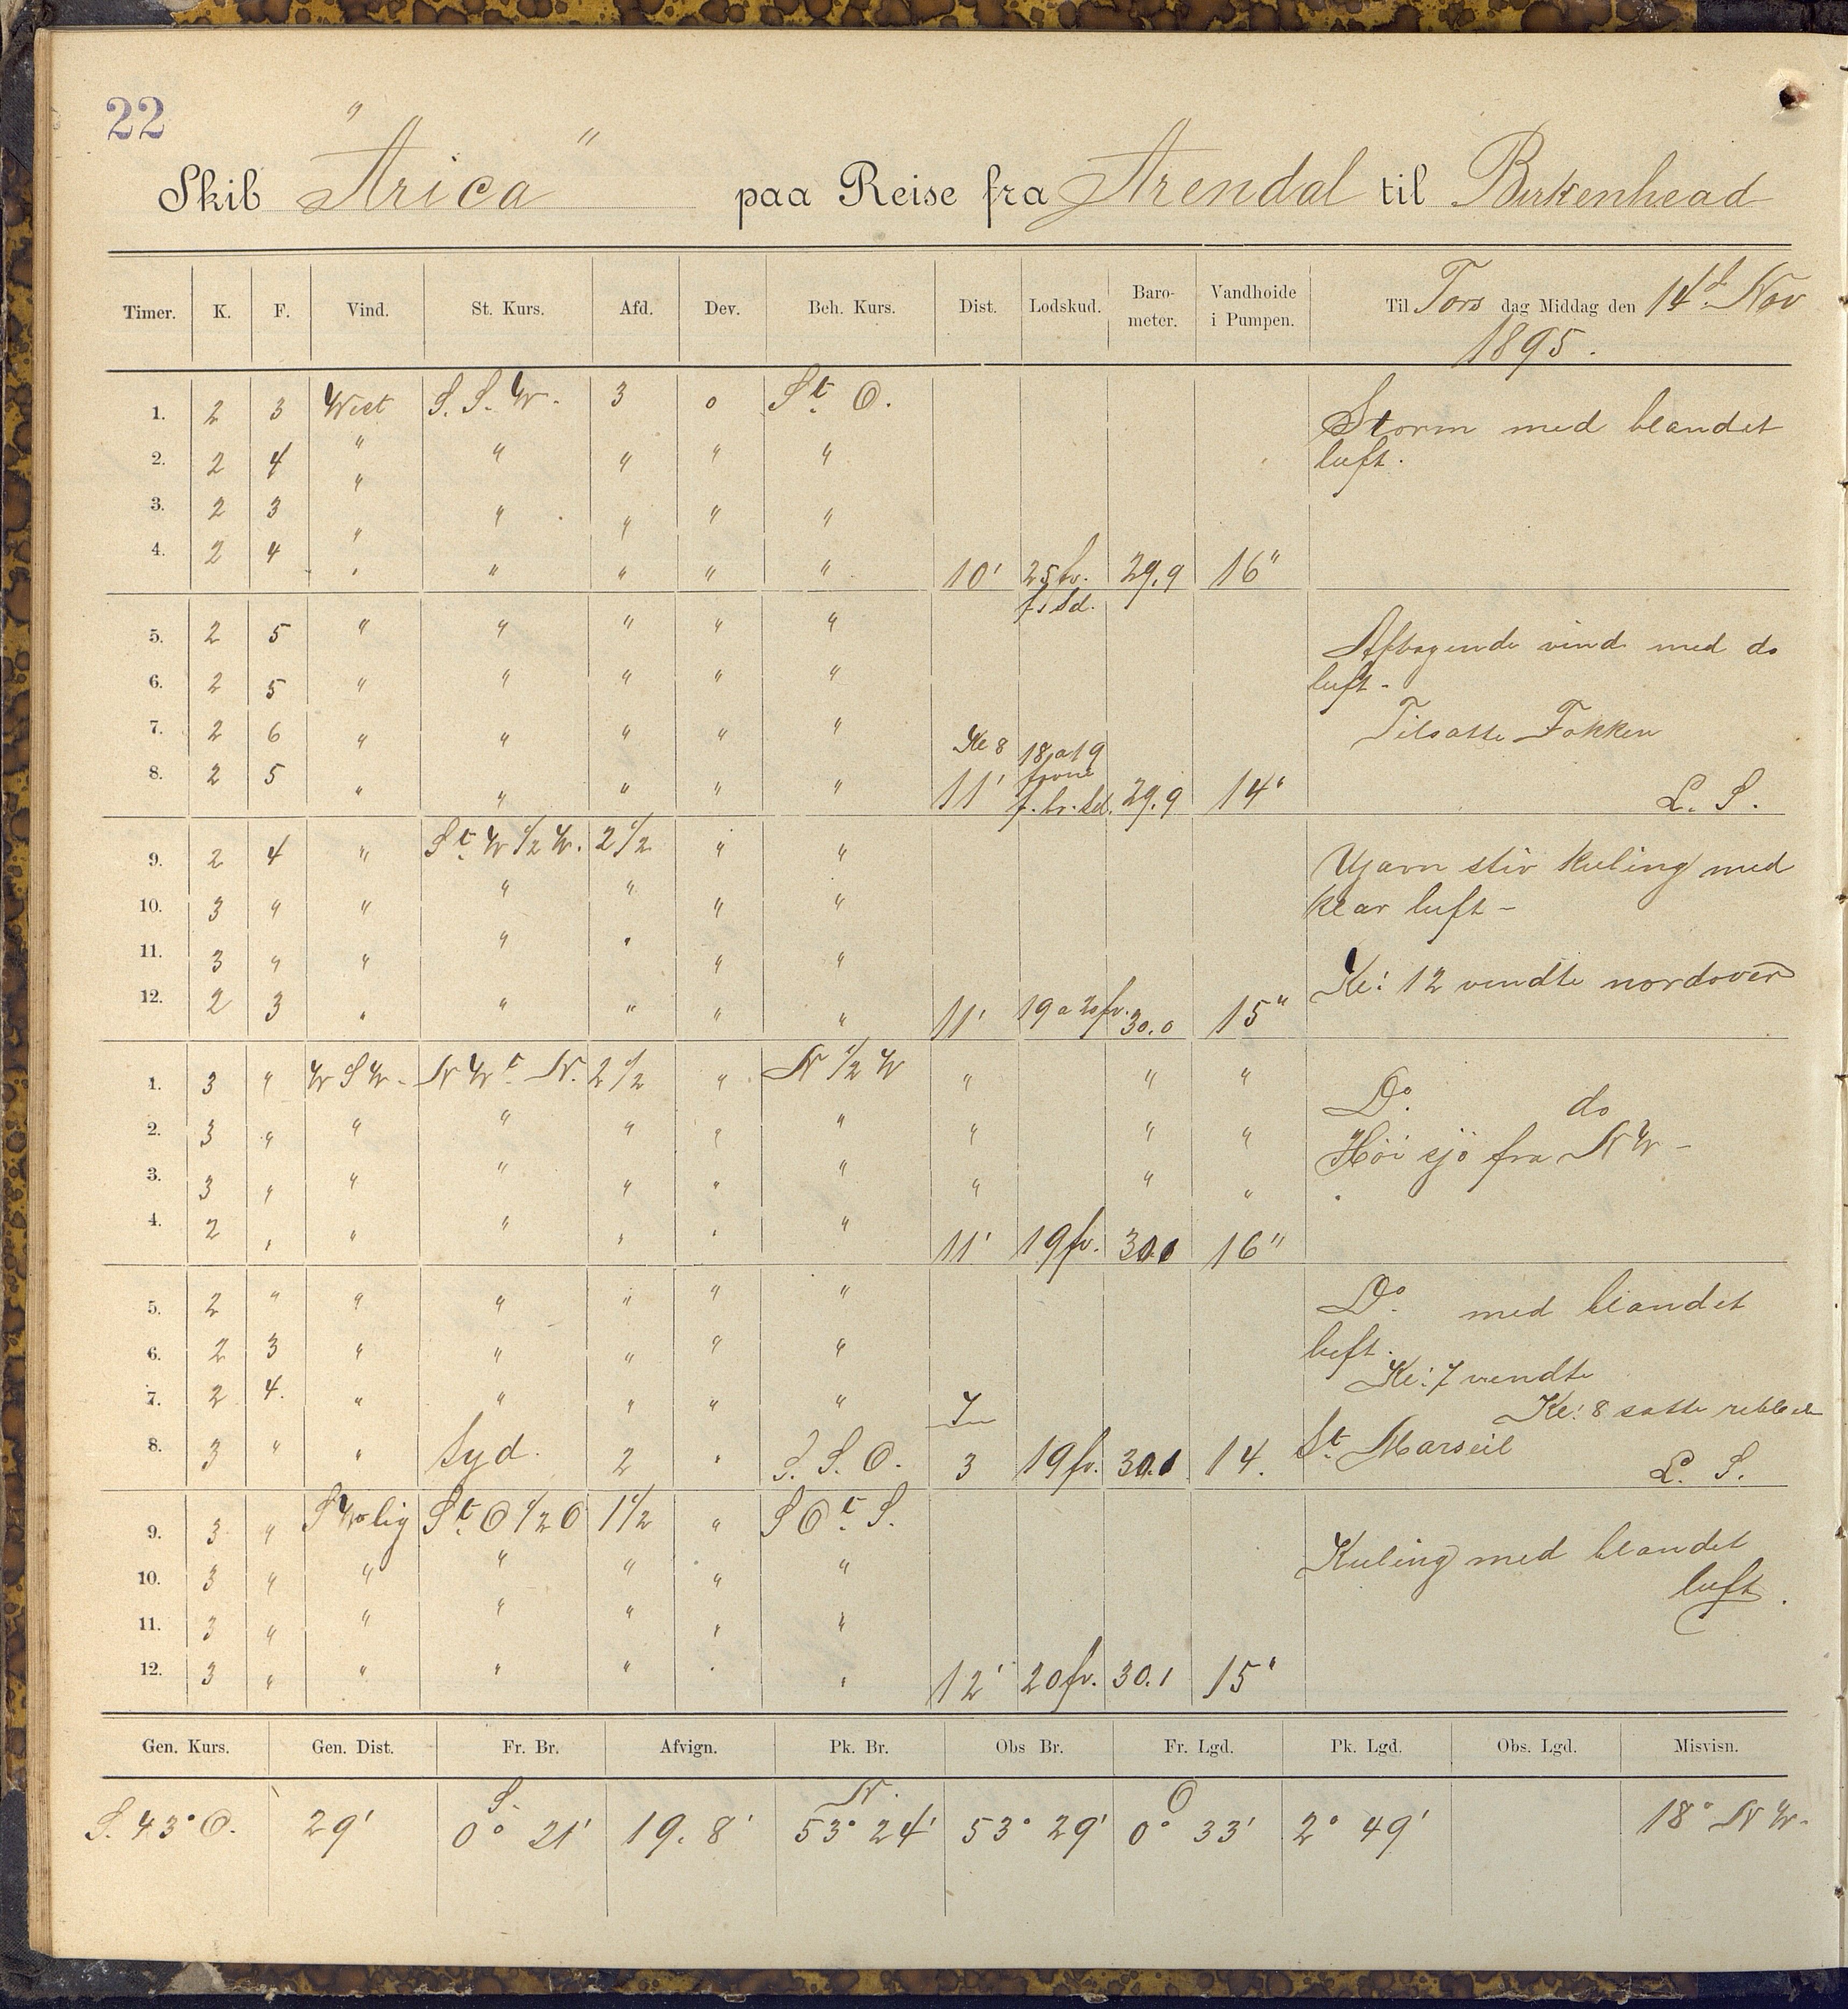 22
Skib "Arica" paa Reise fra Arendal til Birkenhead
Timer. K. F. Vind. St. Kurs. Afd. Dev. Beh. Kurs. Dist. Lodskud. Baro-meter. Vandhoide i Pumpen. Til Tors dag Middag den 14d Nov
1895.
1. 2 3 West S. S. W. 3 0 St O. Storm med blandet
2. 2 4 " " " " " luft.
3. 2 3 " " " " "
4. 2 4 " " " " " 10' 25 fv. 29.9 16"
f. sd.
5. 2 5 " " " " " Aftagende vind med do
6. 2 5 " " " " " luft -
7. 2 6 " " " " " Kl 8 18 at 9 Tilsatte Fokken
8. 2 5 " " " " " 11' favne f. br. sd. 29.9 14" L. S.
9. 2 4 " St W 1/2 W. 2 1/2 " " Ujavn stiv Kuling med
10. 3 " " " " " " klar luft -
11. 3 " " " " " "
12. 2 3 " " " " " 11' 19 a 20 fv. 30.0 15" Kl: 12 vendte nordover
1. 3 " W S W - N W t N. 2 1/2 " N 1/2 W " " " Do. do
2. 3 " " " " " " " " " Höi sjö fra N W -
3. 3 " " " " " " " " "
4. 2 " " " " " " 11' 19 fv. 30.1 16"
5. 2 " " " " " " Do. med blandet
6. 2 3 " " " " " luft.
7. 2 4. " " " " " 7 Kl: 7 vendte
Kl: 8 satte
8. 3 " " Syd. 2 " S. S. O. 3 19 fv. 30.1 14. St. Marseil L. S.
9. 3 " S Wlig St O 1/2 O 1 1/2 " S O t S. Kuling med blandet
10. 3 " " " " " " luft.
11. 3 " " " " " "
12. 3 " " " " " " 12' 20 fv. 30.1 15"
Gen. Kurs. Gen. Dist. Fr. Br. Afvign. Pk. Br. Obs Br. Fr. Lgd. Pk. Lgd. Obs. Lgd. Misvisn.
S. N. O
S. 43° O. 29' 0° 21' 19.8' 53° 24' 53° 29' 0° 33' 2° 49' 18° N W.